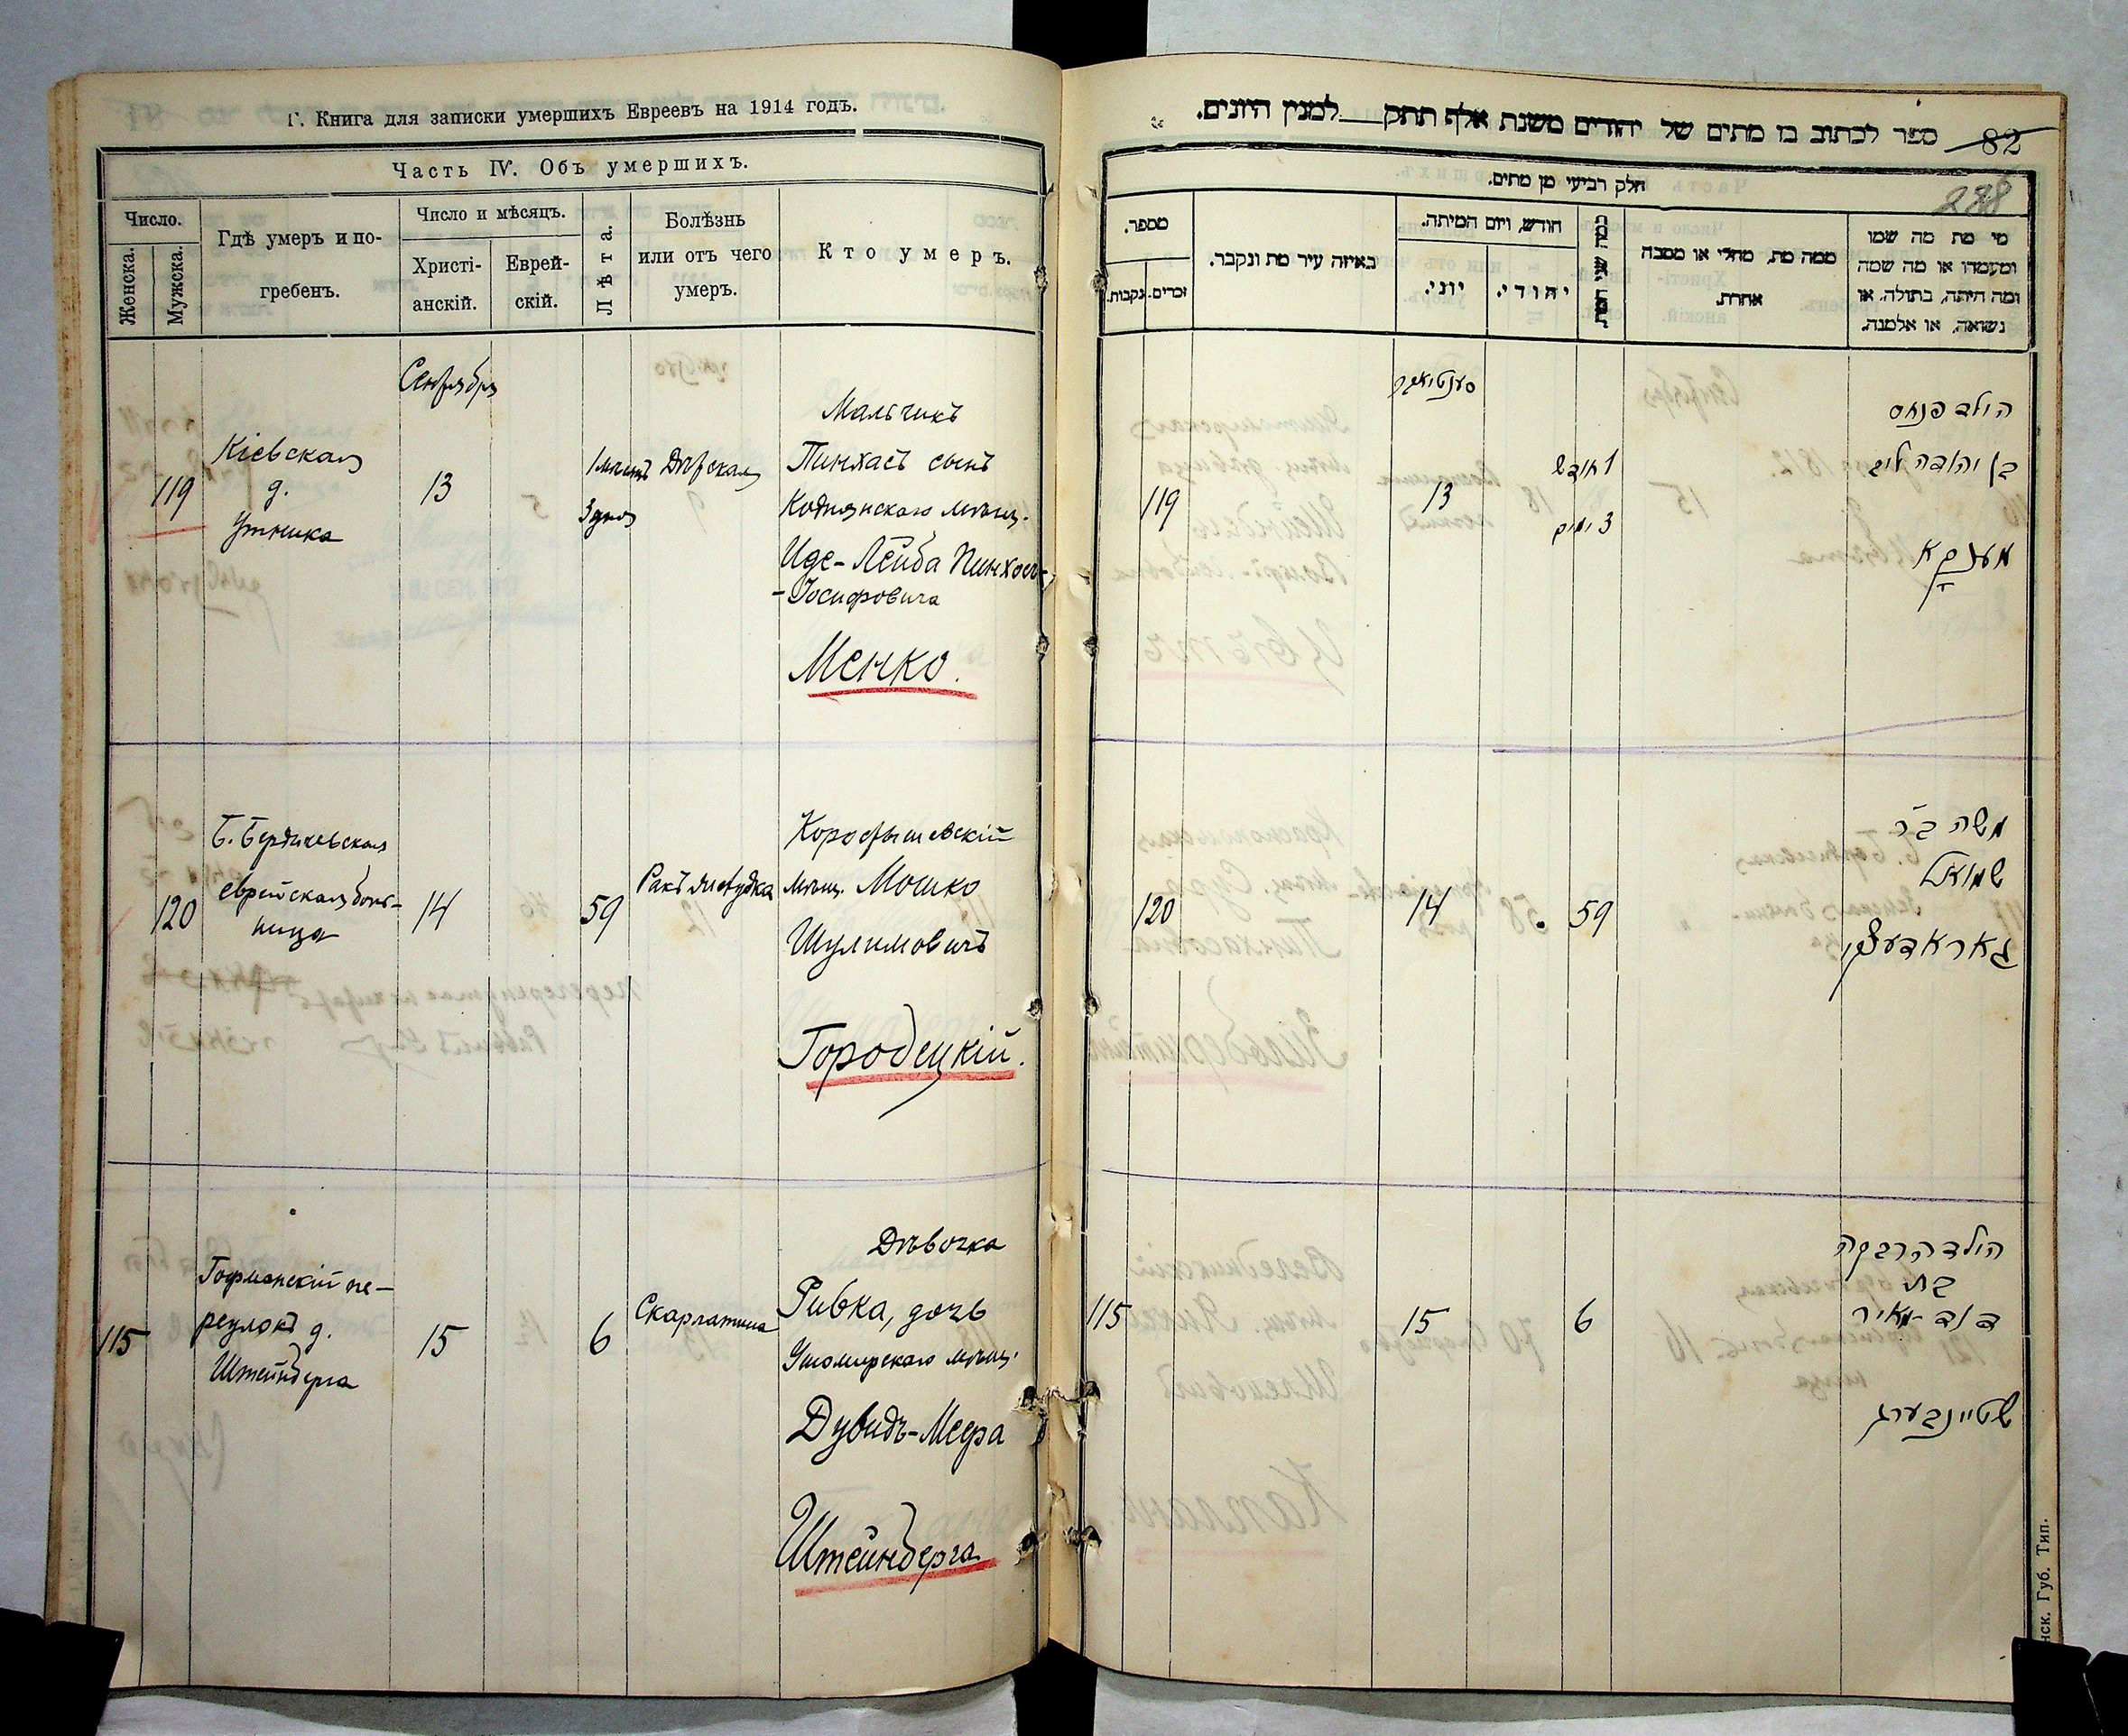 Г. Книга для записки умершихъ Евреевъ на 1914 годъ.
Часть IV. Объ умершихъ.
Число.
Женска.
Мужска.
Гдѣ умеръ и по-
гребенъ.
Число и мѣсяцъ.
Христі-
анскій.
Еврей-
скій.
Лѣта.
Болѣзнь
или отъ чего
умеръ.
Кто умеръ.
Сентября
119
Кіевская
д.
Утника
13
1 мѣсяцъ
3 дня
Дѣтская
Мальчикъ
Пинхасъ сынъ
Коднянскаго мѣщ.
Иде-Лейба Пинхосъ-
-Іосифовича
Менко.
120
Б. Бердичевская
еврейская боль-
ница
14
59
Ракъ желудка
Коростышевскій
мѣщ. Мошко
Шулимовичъ
Городецкій.
115
Гофманскій пе-
реулокъ д.
Штейнберга
15
6
Скарлатина
Дѣвочка
Ривка, дочь
Ушомирскаго мѣщ.
Дувидъ-Меера
Штейнберга
82
ספר לכתוב בו מתים של יהודים משנת אלף תתק למנין היונים.
238
חלק רביעי מן מתים.
מספר.
נקבות.
זכרים.
באיזה עיר מת ונקבר.
חודש, ויום המיתה.
יוני.
יהודי.
כמה שני המת
ממה מת, מחלי או מסבה
אחרת.
מי מת מה שמו
ומעמדו או מה שמה
ומה היתה, בתולה, או
נשואה, או אלמנה.
סענטיאבר
119
13
1 חודש
3 ימים
הילד פנחס
בן יהודה ליב
מענקא
120
14
59
משה בר
שמואל
גאראדעצקי
115
15
6
הילדה רבקה
בת
דוד מאיר
שטיינבערג
нск. Губ. Тип.